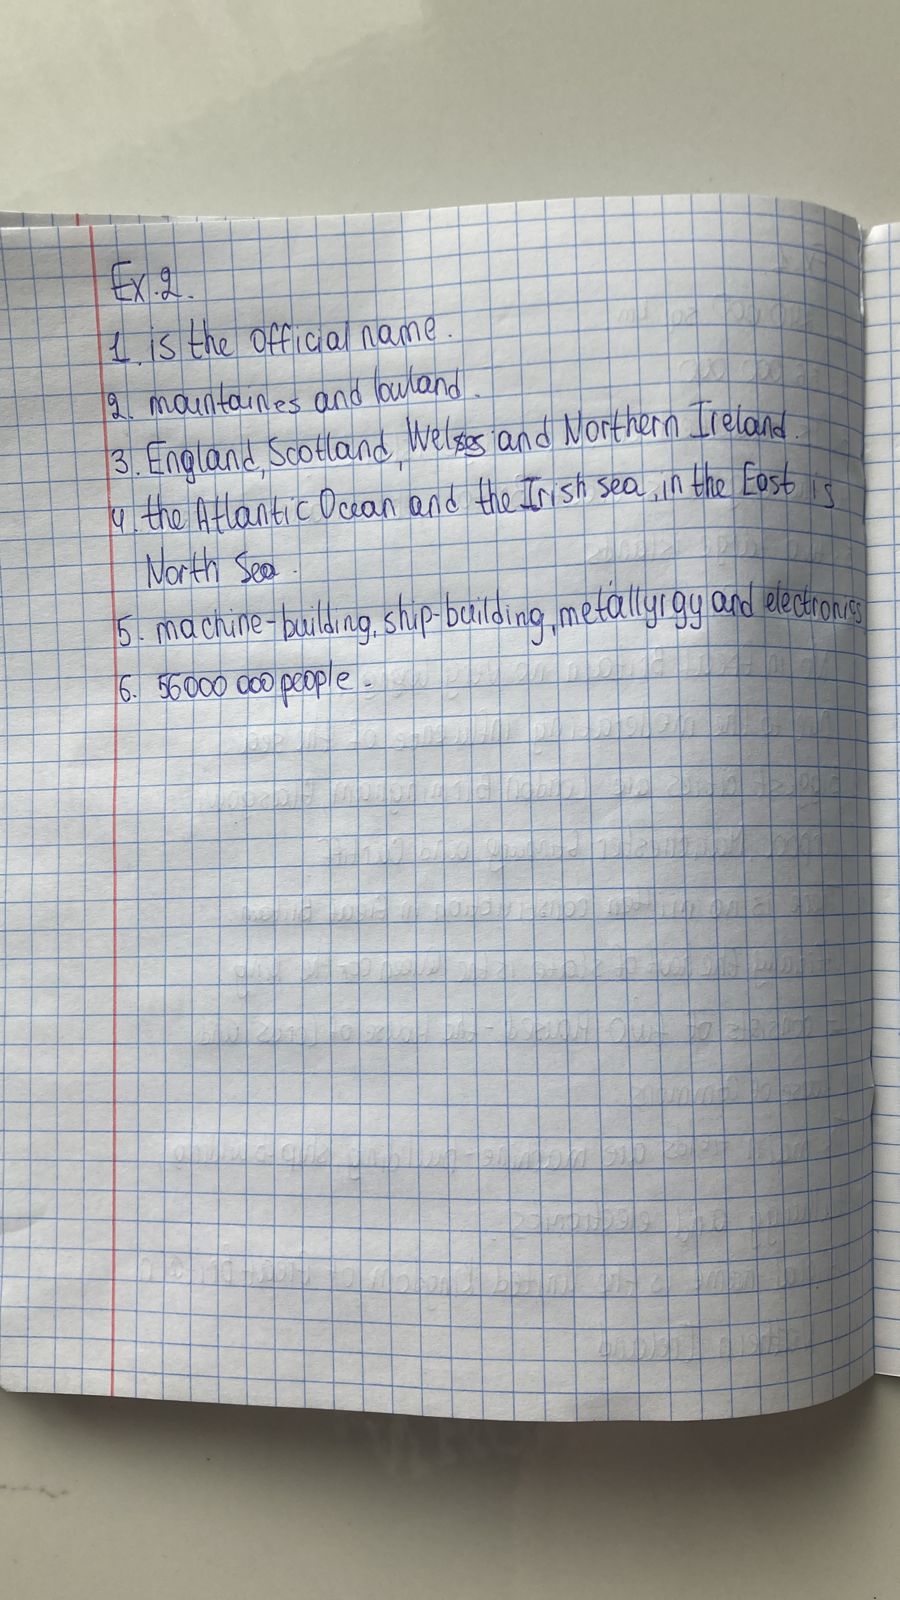 Ex.2.
1. is the official name.
2. mountaines and lowland.
3. England, Scotland, Welses and Northern Ireland.
4. the Atlantic Ocean and the Irish sea, in the East is
North Sea.
5. machine-building, ship-building, metallyrgy and electronics
6. 56000 000 people.